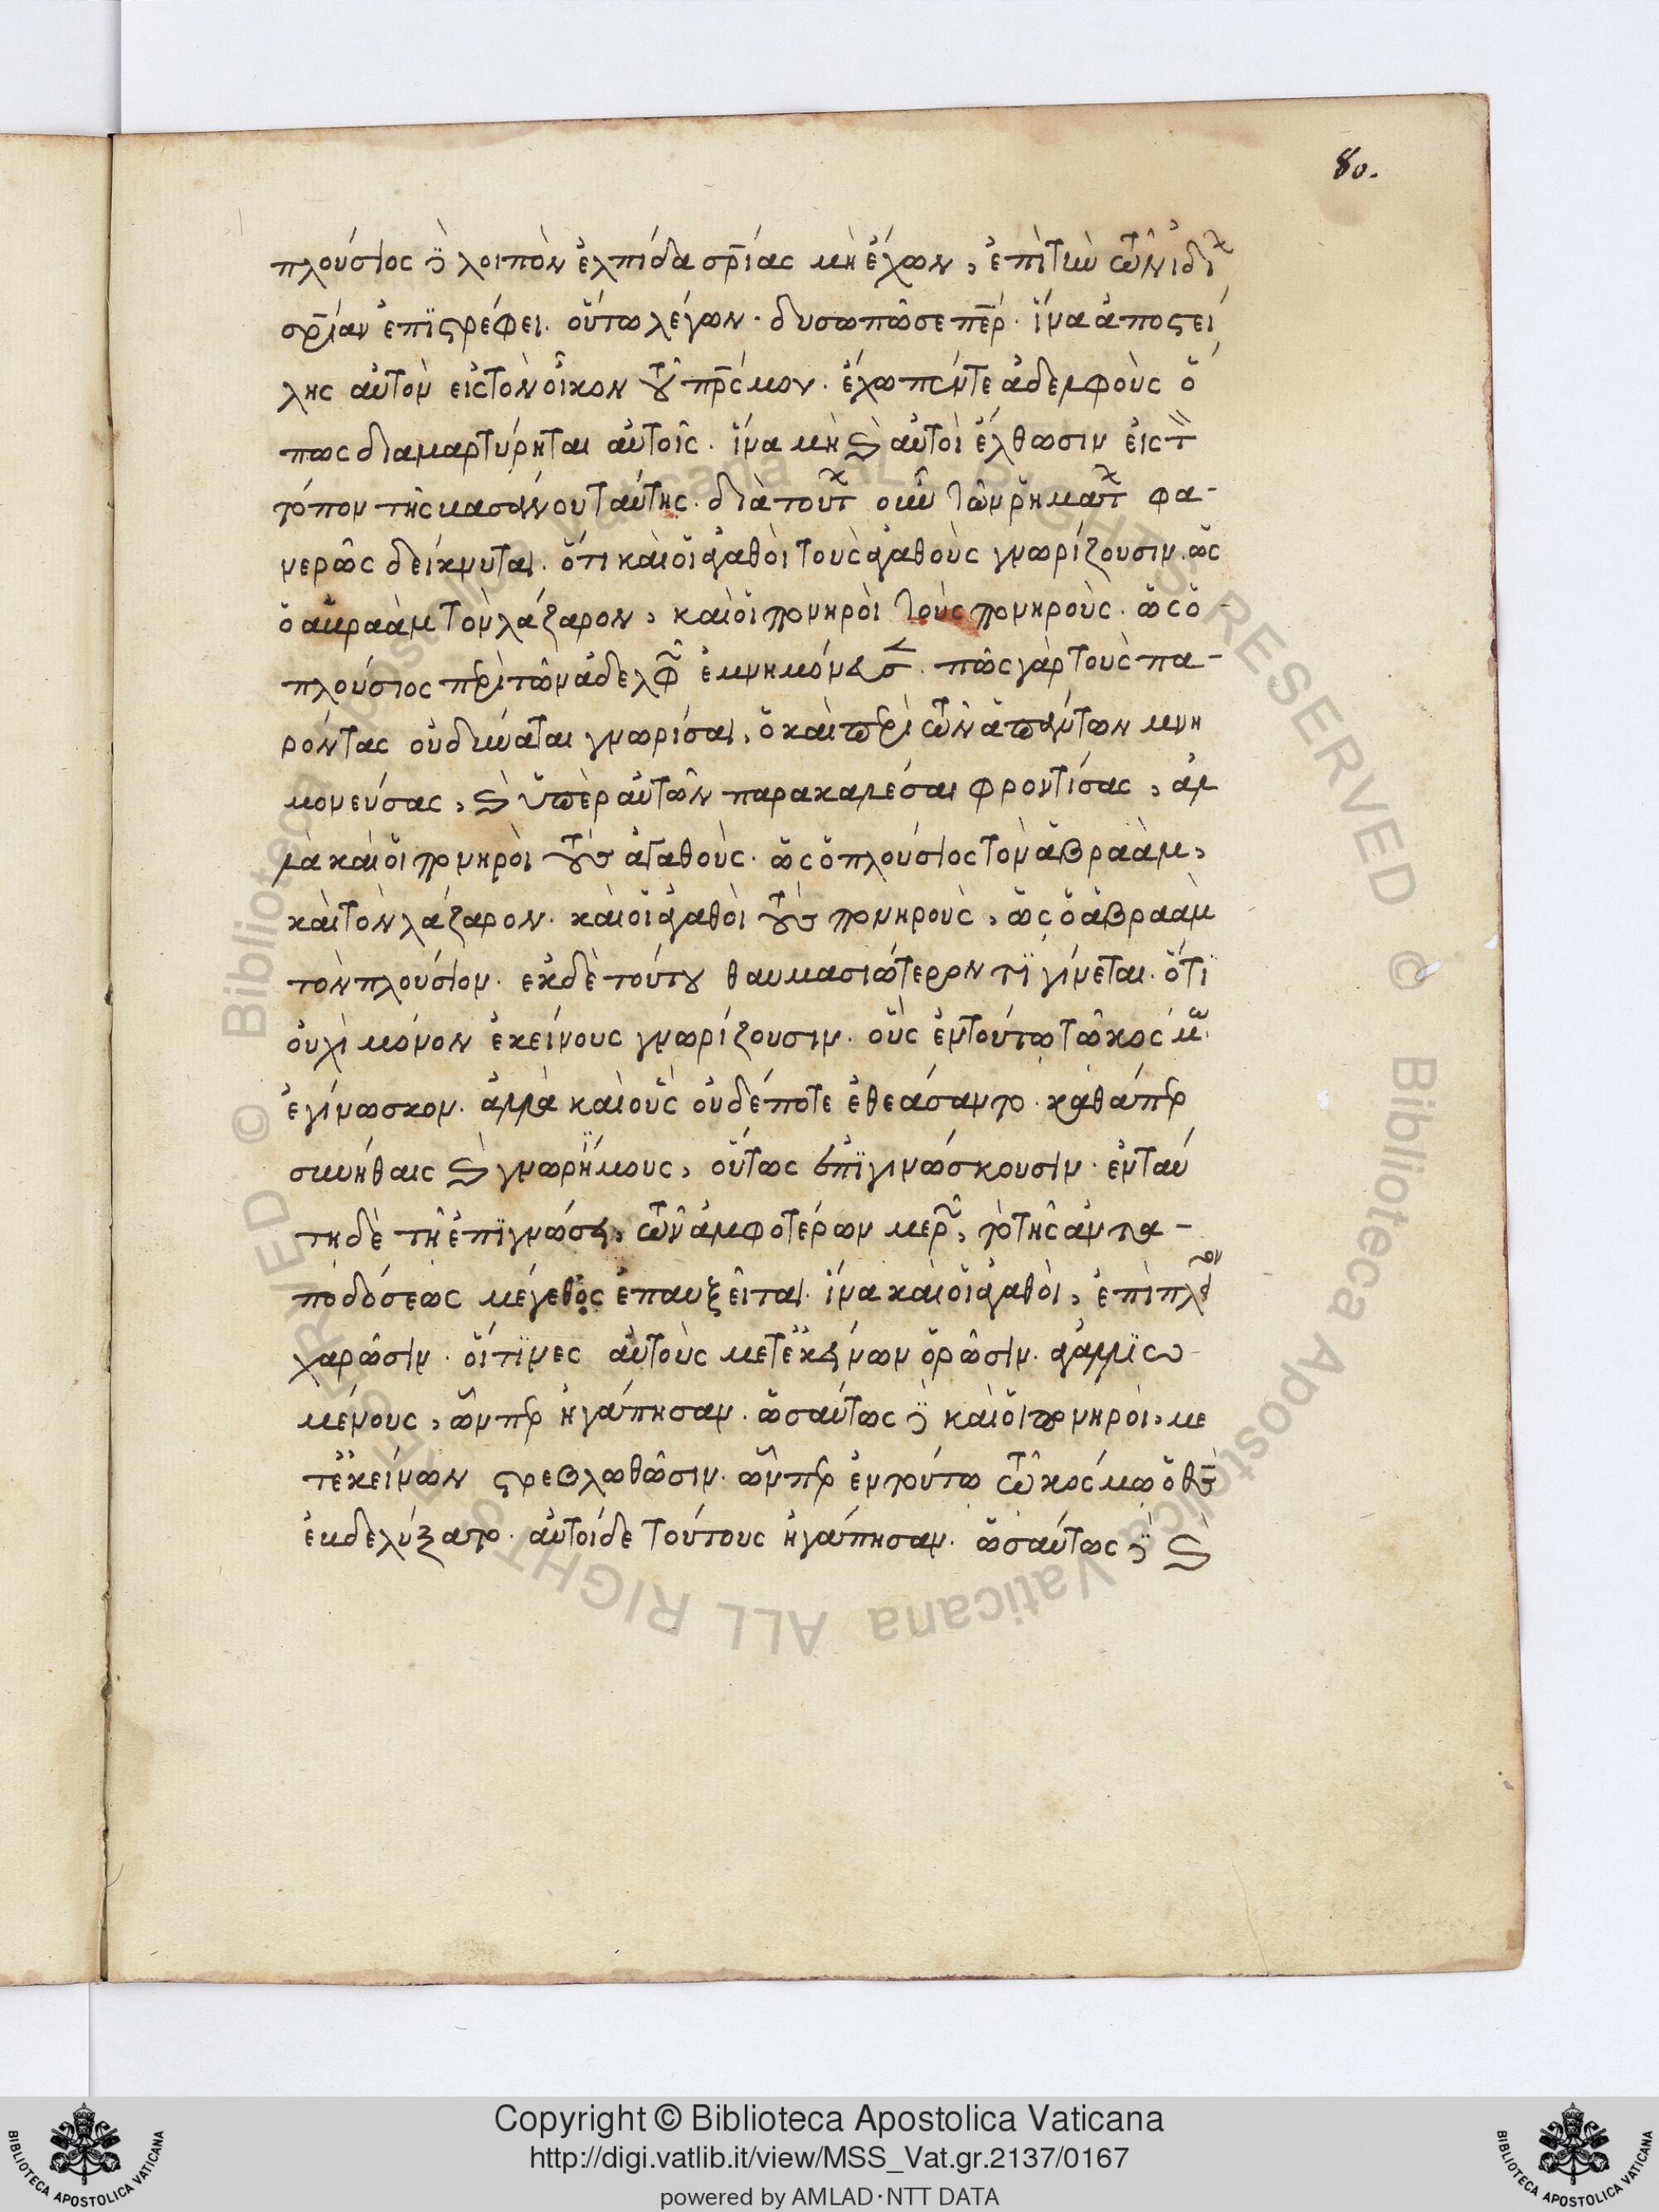 80.
πλούσιος δὲ λοιπὸν ἐλπίδα σρ̅ίας μὴ ἔχων, ἐπὶ τὴν τῶν ἰδί
σρ̅ίαν ἐπϊστρέφει. οὕτω λέγων. δυσωπῶ σε πε̅ρ. ἵνα ἀποστεί
λης αὐτὸν εἰς τὸν οἶκον τοῦ πρ̅ς μου. ἔχω πέντε ἀδελφοὺς ὅ
πως διαμαρτύρηται αὐτοῖς. ἵνα μὴ καὶ αὐτοὶ ἔλθωσιν εἰς τ
τόπον τῆς βασάνου ταύτης. διὰ τούτ οὖν τῶν ῥημάτ φα-
νερῶς δείκνυται. ὅτι καὶ οἱ ἀγαθοὶ τοὺς ἀγαθοὺς γνωρίζουσιν. ὡς
ὁ αβραὰμ τὸν λάζαρον, καὶ οἱ πονηροὶ τοὺς πονηροὺς. ὡς ὁ
πλούσιος περὶ τῶν ἀδελφ ἐμνημόνευσ. πῶς γὰρ τοὺς πα-
ρόντας οὐ δύναται γνωρίσαι, ὁ καὶ περὶ τῶν ἀπόντων μνη
μονεύσας, καὶ ὑπὲρ αὐτῶν παρακαλέσαι φροντίσας, ἀλ
λὰ καὶ οἱ πονηροὶ τοὺς ἀγαθοὺς. ὡς ὁ πλούσιος τὸν ἀβραὰμ,
καὶ τὸν λάζαρον. καὶ οἱ ἀγαθοὶ τοὺς πονηροὺς, ὡς ὁ ἀβραὰμ
τὸν πλούσιον. ἐκ δὲ τούτου θαυμασιώτερόν τϊ γίνεται. ὅτϊ
οὐχὶ μόνον ἐκείνους γνωρίζουσιν. οὓς ἐν τούτω τῶ κόσμ
ἐγίνωσκον. ἀλλὰ καὶ οὓς οὐδέποτε ἐθεάσαντο. καθάπερ
συνήθαις καὶ γνωρήμους, οὕτως ἐπϊγινώσκουσιν. ἐν ταύ
τη δὲ τῆ ἐπϊγνώσει, τῶν ἀμφοτέρων μερ, τὸ τῆς ἀντα-
ποδόσεως μέγεθος ἐπαυξεῖται. ἵνα καὶ οἱ ἀγαθοὶ, ἐπὶ πλέον
χαρῶσιν. οἵτϊνες αὐτοὺς μετ ἐκείνων ὁρῶσιν. ἀγαλλϊω
μένους, ὧνπερ ἠγάπησαν. ὡσαύτως δὲ καὶ οἱ πονηροὶ, με
τ ἐκείνων στρεβλωθῶσιν. ὧνπερ ἐν τούτω τῶ κόσμω ὁ θς̅
ἐβδελύξατο. αὐτοὶ δὲ τούτους ἠγάπησαν. ὡσαύτως δὲ καὶ
Copyright © Biblioteca Apostolica Vaticana
http://digi.vatlib.it/view/MSS_Vat.gr.2137/0167
powered by AMLAD·NTT DATA